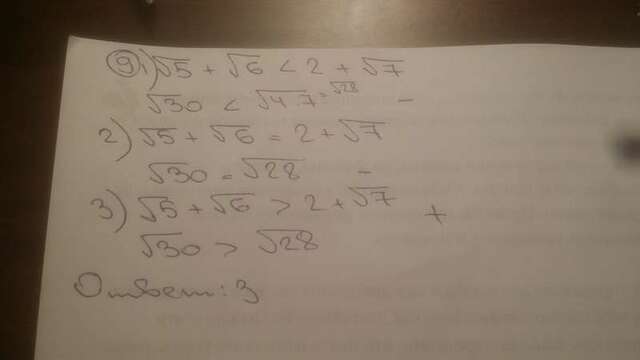 9 1) √5 + √6 < 2 + √7
√30 < √4·7 = √28 -
2) √5 + √6 = 2 + √7
√30 = √28 -
3) √5 + √6 > 2 + √7 +
√30 > √28
Ответ: 3